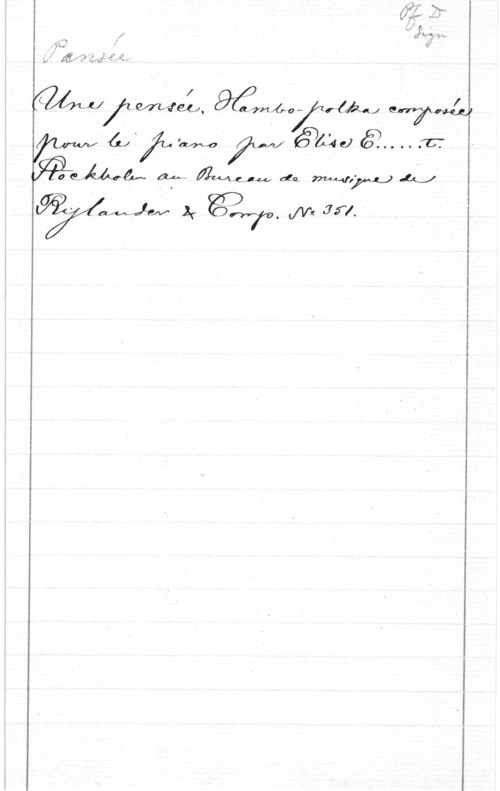 Pf D
Sign
Pensée
Une pensée, Hambo-polka composée
pour le piano par Elise E......t.
Stockholm au Bureau de musique de
Rylander & Comp. № 351.